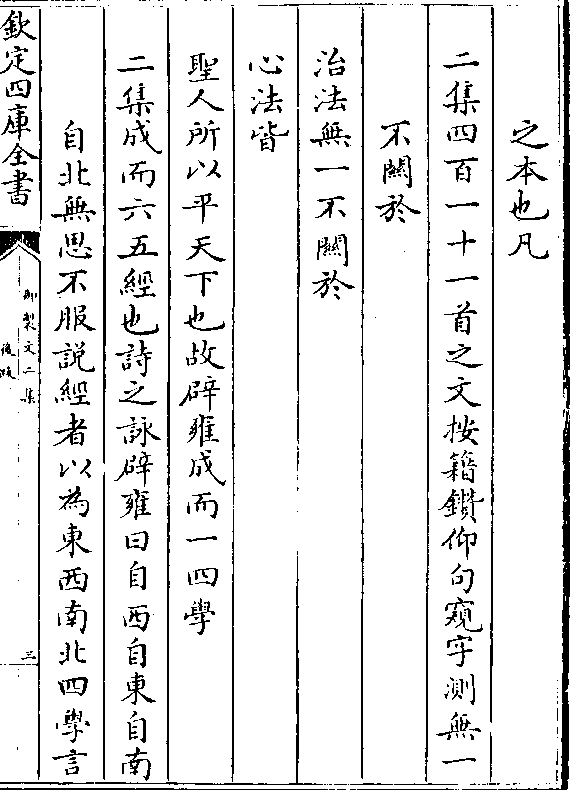 之本也凡
二集四百一十一首之文按籍鑚仰句窺字測無一
不闗於
治法無一不闗於
心法皆
聖人所以平天下也故辟雍成而一四學
二集成而六五經也詩之詠辟雍曰自西自東自南
自北無思不服説經者以為東西南北四學言
欽定四庫全書
御製文二集
後跋
三